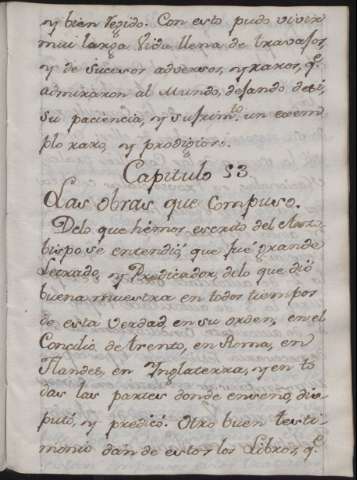 y bien Regido. Con esto pudo vivir
mui larga Vida llena de travajos,
y de sucesos adversos, y raros, q.e
admiraron al Mundo, dejando de si,
su paciencia, y sufrim.to un exem
plo raro, y prodigioso.
Capitulo 53
Las obras que compuso.
Delo que hemos escrito del Arzo
bispo se entendió que fue grande
Letrado, y Predicador, delo que dió
buena muestra en todos tiempos
de esta verdad, en su orden, en el
Concilio de trento, en Roma, en
Flandes, en Ynglaterra, y en to
das las partes donde enseño, dis
putó, y predicó. Otro buen testi
monio dan de esto los Libros, q.e